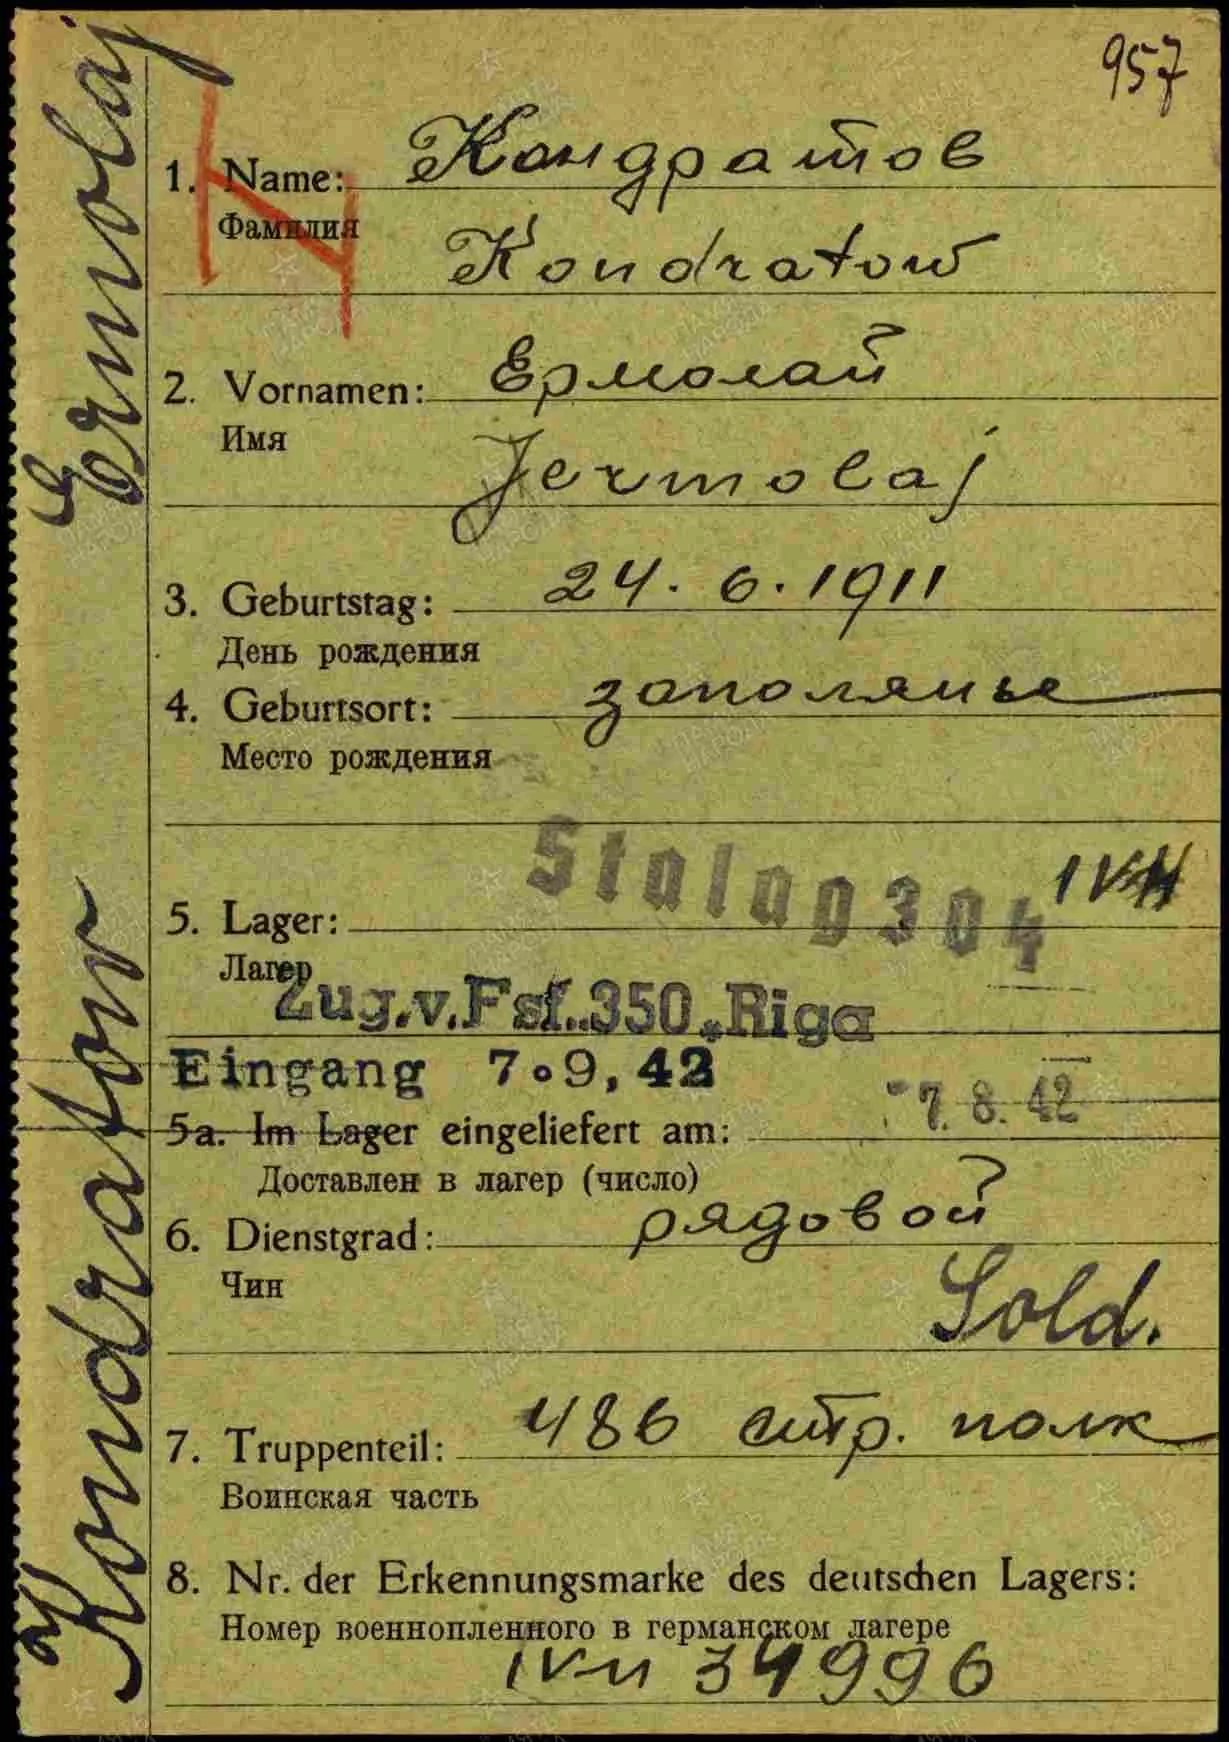 957
Ermolaj
Kondratow
1. Name: Кондратов
Фамилия
Kondratow
2. Vornamen: Ермолай
Имя
Jermolaj
3. Geburtstag: 24. 6. 1911
День рождения
4. Geburtsort: Заполянье
Место рождения
5. Lager: Stalag 304 IV H
Лагер
Zug.v.Fsf. 350. Riga
Eingang 7.9,42
5a. Im Lager eingeliefert am: -7. 8. 42
Доставлен в лагер (число)
6. Dienstgrad: рядовой
Чин
Sold.
7. Truppenteil: 486 стр. полк
Воинская часть
8. Nr. der Erkennungsmarke des deutschen Lagers:
Номер военнопленного в германском лагере
34996